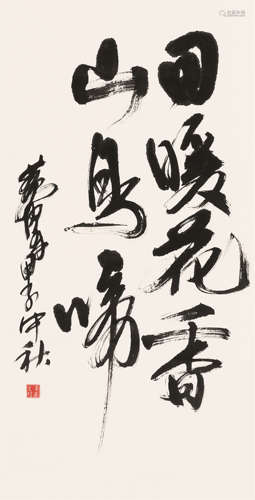 日暖花香
山鸟啼
黄胄甲子中秋